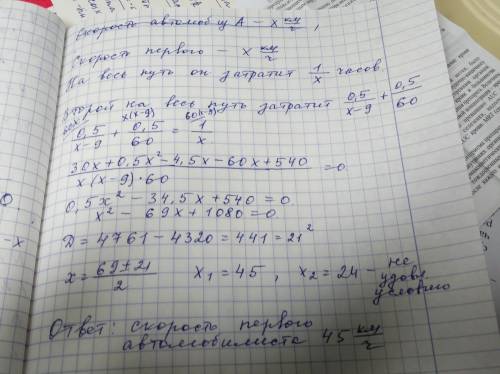 Скорость автомобиля А – x км/ч,
Скорость первого – x км/ч
На весь путь он затратит 1/x часов.
Второй на весь путь затратит 0,5/(x-9) + 0,5/60
60x x(x-9) 60(x-9)
0,5/(x-9) + 0,5/60 = 1/x
(30x+0,5x²-4,5x-60x+540)/(x(x-9)·60) = 0
0,5x² - 34,5x + 540 = 0
x² - 69x + 1080 = 0
D = 4761 - 4320 = 441 = 21²
x = (69±21)/2 x₁ = 45, x₂ = 24 – не удовл условию
Ответ: скорость первого
автомобилиста 45 км/ч
0
-x